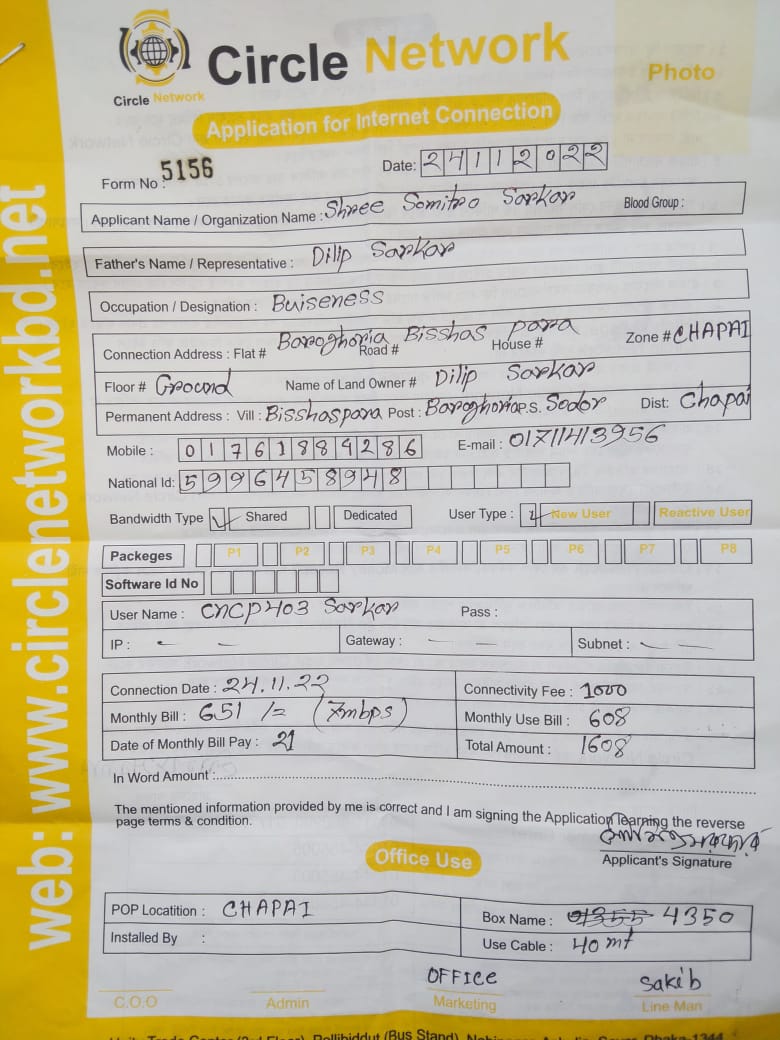 Circle Network
Circle Network
Photo
Application for Internet Connection
Form No : 5156
Date: 24112022
Applicant Name / Organization Name : Shree Somitro Sarkar Blood Group :
Father's Name / Representative : Dilip Sarkar
Occupation / Designation : Buiseness
Connection Address : Flat # Baroghoria Bisshas para Road # House # Zone # CHAPAI
Floor # Ground Name of Land Owner # Dilip Sarkar
Permanent Address : Vill : Bisshaspara Post : Baroghoria P.S. Sodor Dist: Chapai
Mobile : 01761884286 E-mail : 01711413956
National Id: 5996458948
Bandwidth Type Shared Dedicated User Type : New User Reactive User
Packeges P1 P2 P3 P4 P5 P6 P7 P8
Software Id No
User Name : CNCP403 Sarkar Pass :
IP : - - Gateway : - - Subnet : - -
Connection Date : 24.11.22 Connectivity Fee : 1000
Monthly Bill : 651 /= (7mbps) Monthly Use Bill : 608
Date of Monthly Bill Pay : 21 Total Amount : 1608
In Word Amount :
The mentioned information provided by me is correct and I am signing the Application learning the reverse
page terms & condition.
Applicant's Signature
Office Use
POP Locatition : CHAPAI Box Name : 4350
Installed By : Use Cable : 40 mt
OFFICE Sakib
C.O.O Admin Marketing Line Man
web: www.circlenetworkbd.net